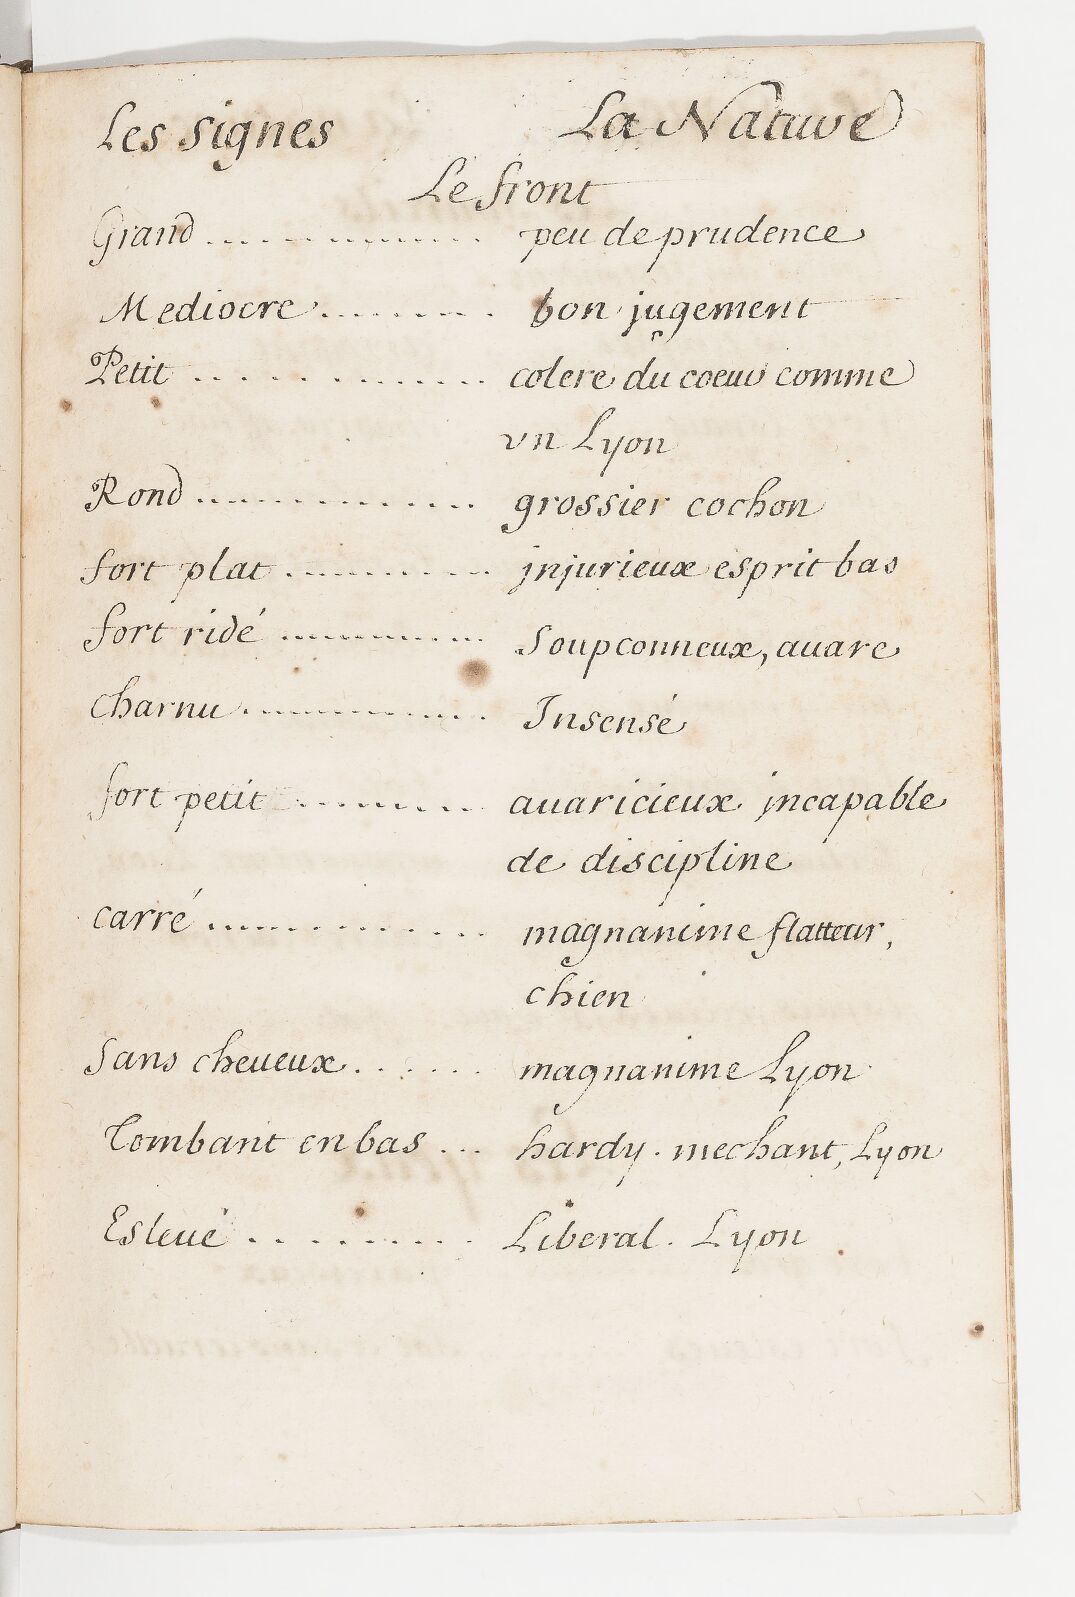 Les signes La Nature
Le front
Grand .............. peu de prudence
Mediocre ........ bon jugement
Petit ............. colere du coeur comme
vn Lyon
Rond ............... grossier cochon
fort plat ........... jnjurieux esprit bas
fort ridé ............ Soupconneux, auare
charnu ............. Insensé
fort petit ......... auaricieux jncapable
de discipline
carré ............. magnanime flatteur,
chien
Sans cheueux ...... magnanime Lyon
Tombant en bas ... hardy. mechant, Lyon
Esleué ......... Liberal. Lyon